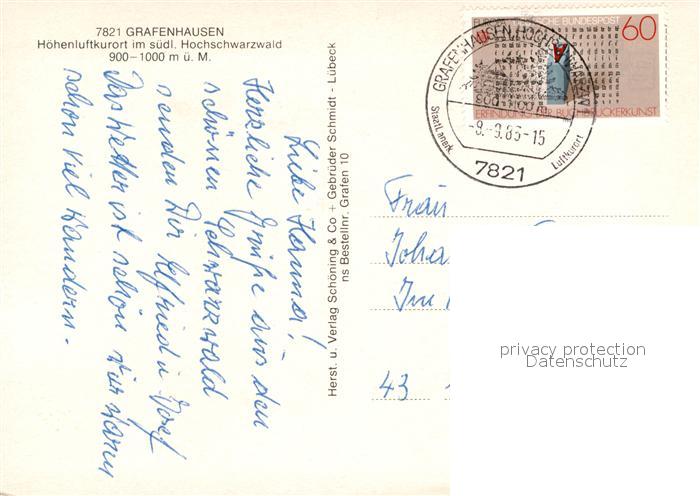 7821 GRAFENHAUSEN
Höhenluftkurort im südl. Hochschwarzwald
900–1000 m ü. M.
Liebe Hanna!
Herzliche Grüße aus den
schönen Schwarzwald
senden Dir Elfried u. Josef
Das Wetter ist schön wir kann
schon viel Wandern.
Herst. u. Verlag Schöning & Co + Gebrüder Schmidt - Lübeck
ns Bestellnr. Grafen 10
DEUTSCHE BUNDESPOST 60
ERFINDUNG DER BUCHDRUCKERKUNST
GRAFENHAUSEN, HOCHSCHWARZWALD
900-1000
-9.-9.83-15
Staatl. anerk. Luftkurort
7821
Frau
Joha
Im
43
privacy protection
Datenschutz